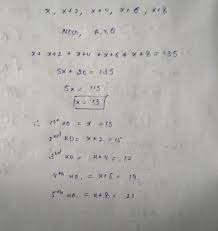 x, x+2, x+4, x+6, x+8
Now, A.T.Q
x+ x+2 + x+4 + x+6 + x+8 = 135
5x + 20 = 135
5x = 115
x = 13
∴ 1st no. = x = 13
2nd no. = x+2 = 15
3rd no. = x+4 = 17
4th no. = x+6 = 19
5th no. = x+8 = 21